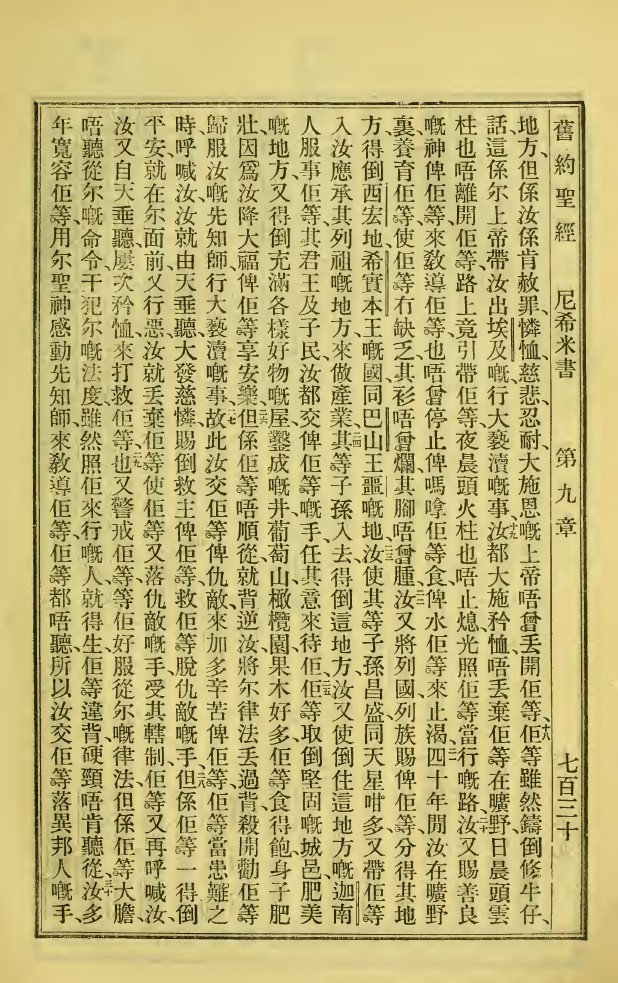 舊約聖經 尼希米書 第九章 七百三十
地方、但係汝係肯赦罪、憐恤、慈悲、忍耐、大施恩嘅上帝、唔曾丢開佢等、十八佢等雖然鑄倒條牛仔、
話、這係尔上帝、帶汝出埃及嘅、行大褻瀆嘅事、十九汝都大施矜恤、唔丢棄佢等在曠野、日晨頭雲
柱也唔離開佢等、路上竟引帶佢等、夜晨頭火柱也唔止熄光照佢等當行嘅路、二十汝又賜善良
嘅神俾佢等、來敎導佢等、也唔曾停止俾嗎嗱佢等食、俾水佢等來止渴、二一四十年間汝在曠野
裏養育佢等、使佢等冇缺乏、其衫唔曾爛、其腳唔曾腫、二二汝又將列國列族賜俾佢等、分得其地
方、得倒西宏地、希實本王嘅國、同巴山王噩嘅地、二三汝使其等子孫昌盛、同天星咁多、又帶佢等
入汝應承其列祖嘅地方、來做產業、二四其等子孫入去、得倒這地方、汝又使倒住這地方嘅迦南
人服事佢等、其君王及子民、汝都交俾佢等嘅手、任其意來待佢、二五佢等取倒堅固嘅城邑、肥美
嘅地方、又得倒充滿各樣好物嘅屋、鑿成嘅井、葡萄山、橄欖園、果木好多、佢等食得飽、身子肥
壯、因爲汝降大福俾佢等享安樂、二六但係佢等唔順從、就背逆汝、將尔律法丢過背、殺開勸佢等
歸服汝嘅先知師、行大褻瀆嘅事、二七故此汝交佢等俾仇敵、來加多辛苦俾佢等、佢等當患難之
時、呼喊汝、汝就由天垂聽、大發慈憐、賜倒救主俾佢等、救佢等脫仇敵嘅手、二八但係佢等一得倒
平安、就在尔面前又行惡、汝就丢棄佢等、使佢等又落仇敵嘅手、受其轄制、佢等又再呼喊汝、
汝又自天垂聽、屢次矜恤、來打救佢等、二九也又警戒佢等、等佢好服從尔嘅律法、但係佢等大膽
唔聽從尔嘅命令、干犯尔嘅法度、雖然照佢來行嘅人、就得生、佢等違背、硬頸唔肯聽從、三十汝多
年寬容佢等、用尔聖神感動先知師來敎導佢等、佢等都唔聽、所以汝交佢等落異邦人嘅手、